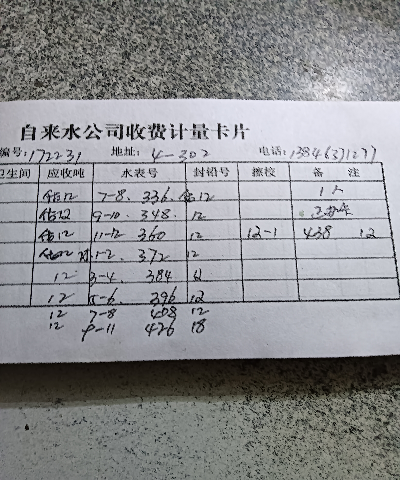 自来水公司收费计量卡片
编号:172231 地址: 4-302 电话:
卫生间 应收吨 水表号 封铅号 擦校 备 注
估12 7-8. 336. 估12 1人
估12 9-10. 348. 12
估12 11-12 360 12 12-1 438 12
1-2. 372 12
12 3-4. 384
12 5-6. 396 12
12 7-8 408 12
12 9-11 426 18